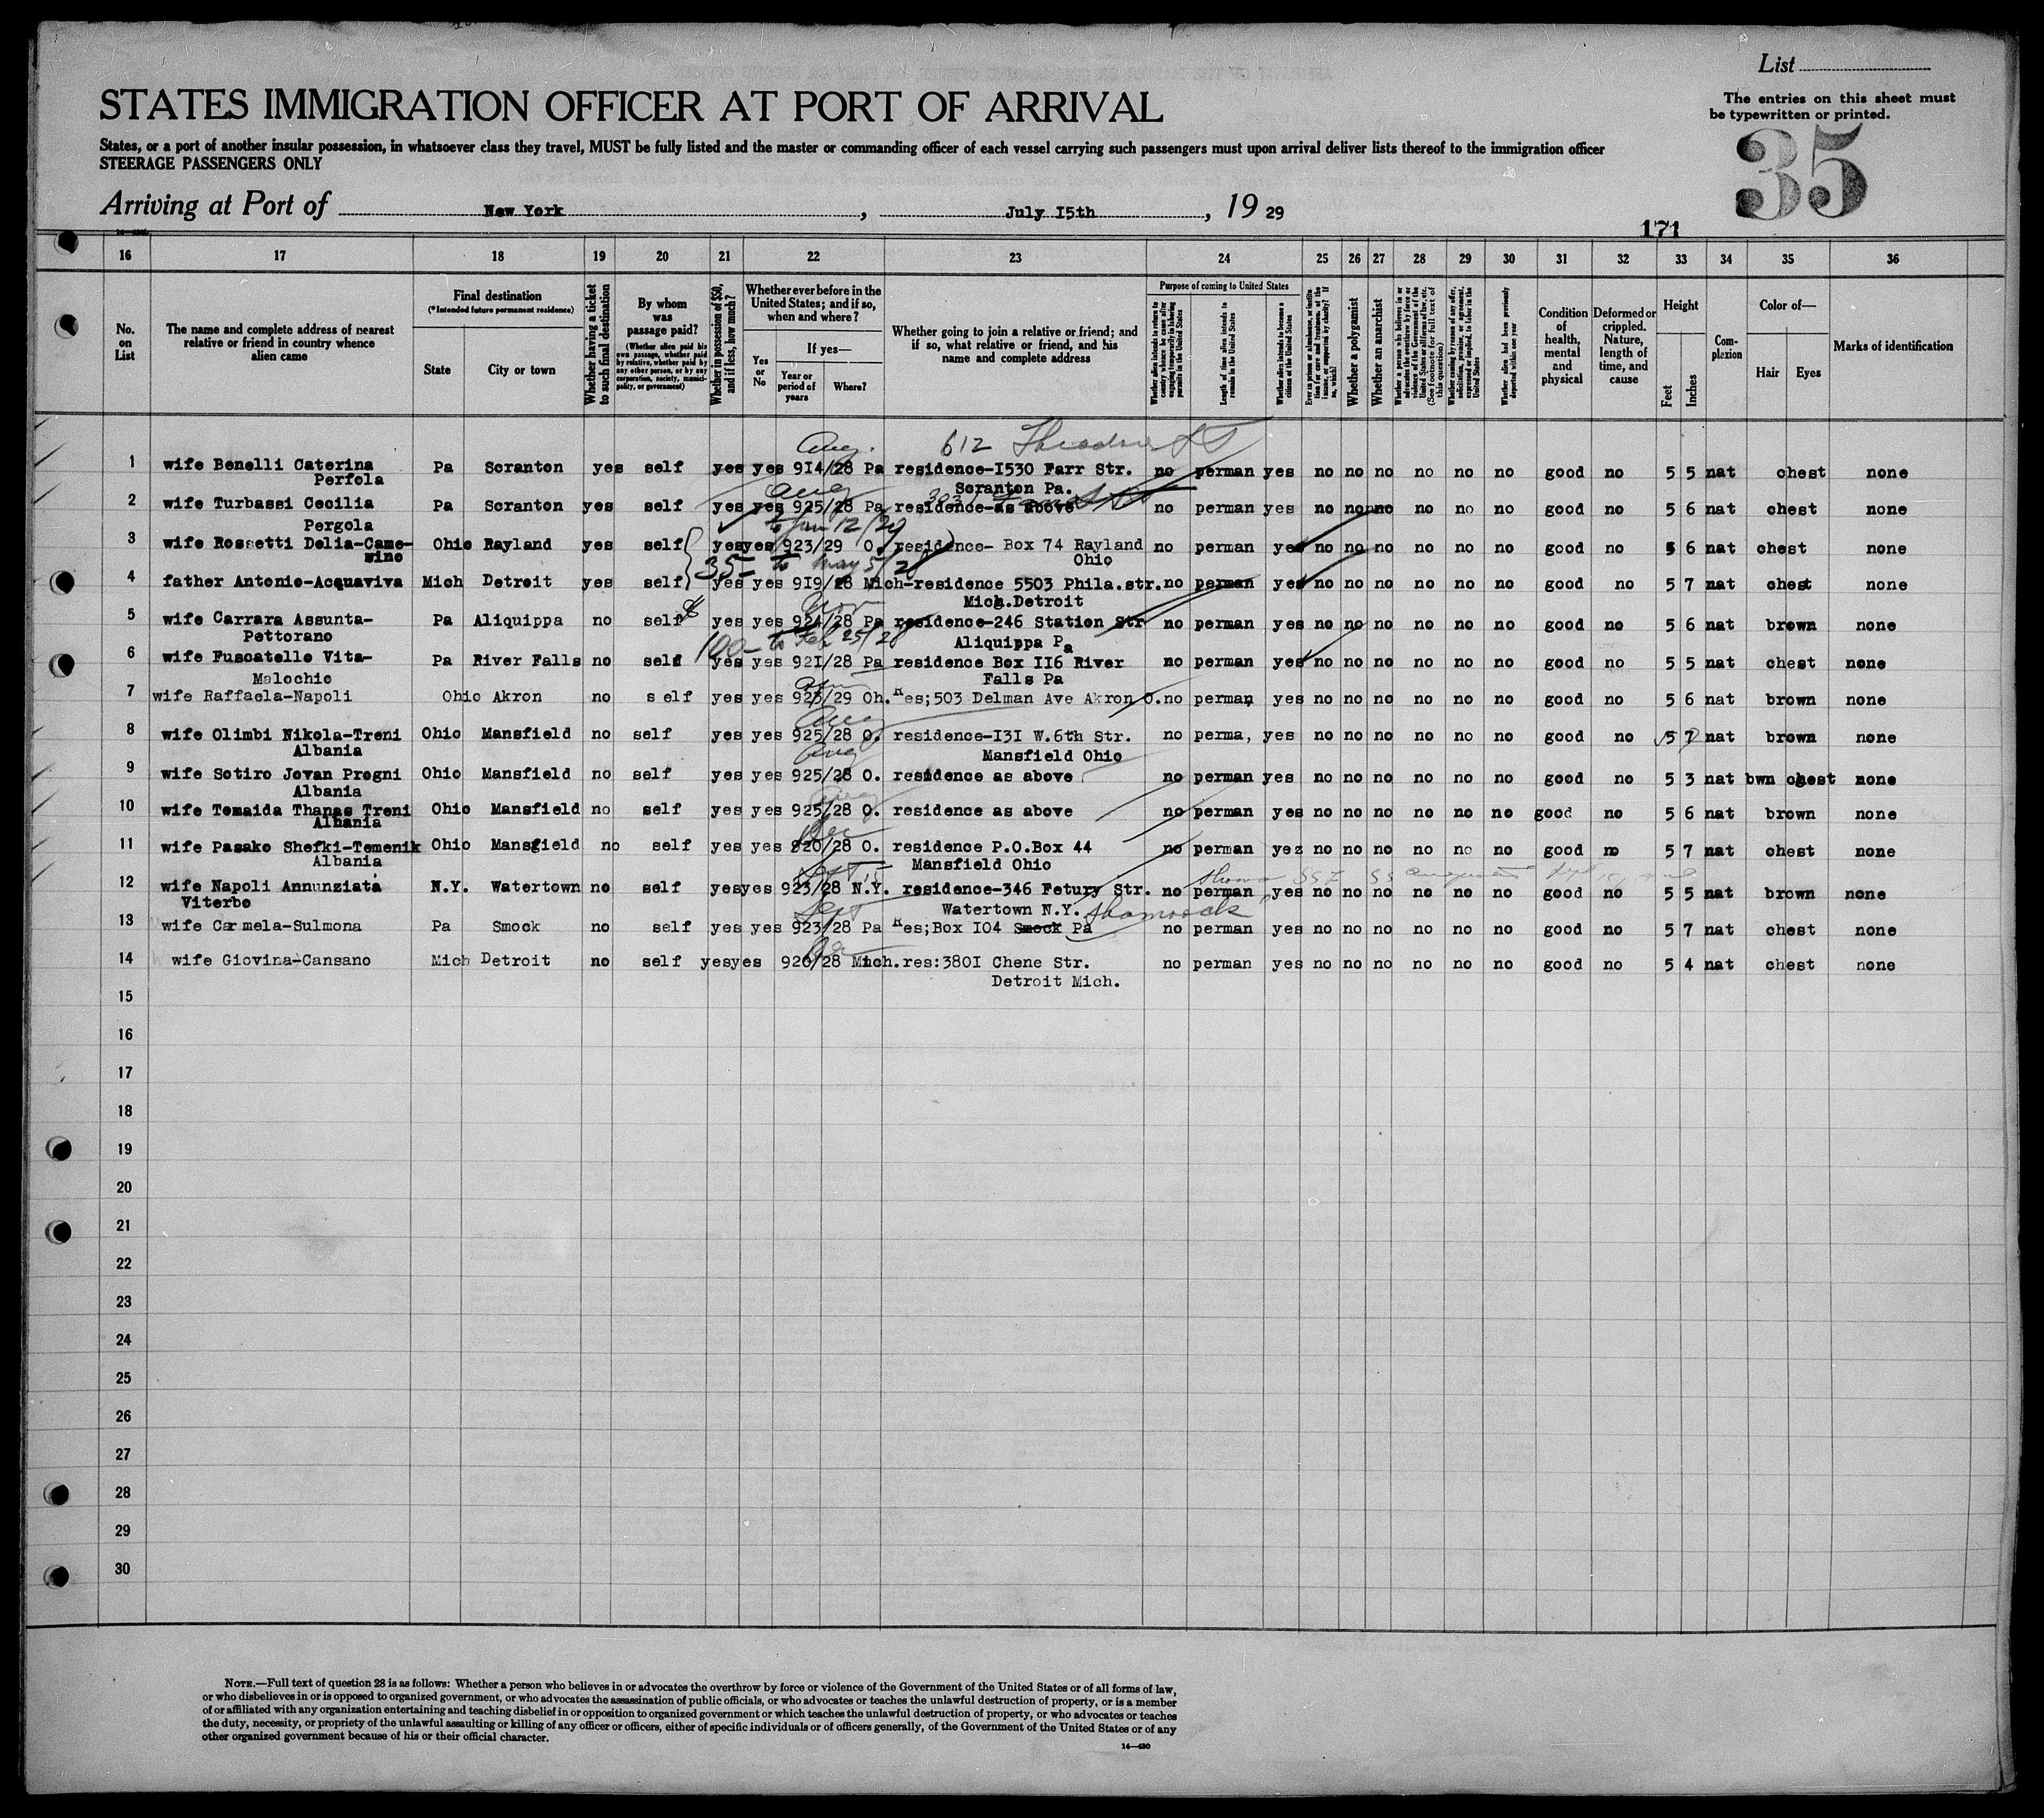 List
STATES IMMIGRATION OFFICER AT PORT OF ARRIVAL
The entries on this sheet must
be typewritten or printed.
States, or a port of another insular possession, in whatsoever class they travel, MUST be fully listed and the master or commanding officer of each vessel carrying such passengers must upon arrival deliver lists thereof to the immigration officer
STEERAGE PASSENGERS ONLY
35
Arriving at Port of New York, July I5th, 19 29
171
16 17 18 19 20 21 22 23 24 25 26 27 28 29 30 31 32 33 34 35 36
No. on List
The name and complete address of nearest relative or friend in country whence alien came
Final destination
(*Intended future permanent residence)
State
City or town
Whether having a ticket to such final destination
By whom was passage paid?
(Whether alien paid his own passage, whether paid by relative, whether paid by any other person, or by any corporation, society, municipality, or government)
Whether in possession of $50, and if less, how much?
Whether ever before in the United States; and if so, when and where?
Yes or No
If yes—
Year or period of years
Where?
Whether going to join a relative or friend; and if so, what relative or friend, and his name and complete address
Purpose of coming to United States
Whether alien intends to return to country whence he came after engaging temporarily in laboring pursuits in the United States
Length of time alien intends to remain in the United States
Whether alien intends to become a citizen of the United States
Ever in prison or almshouse, or institution for care and treatment of the insane, or supported by charity? If so, which?
Whether a polygamist
Whether an anarchist
Whether a person who believes in or advocates the overthrow by force or violence of the Government of the United States or all forms of law, etc. (See footnote for full text of this question)
Whether coming by reason of any offer, solicitation, promise, or agreement, expressed or implied, to labor in the United States
Whether alien had been previously deported within one year
Condition of health, mental and physical
Deformed or crippled. Nature, length of time, and cause
Height
Feet
Inches
Complexion
Color of—
Hair
Eyes
Marks of identification
Aug. 612 Theodore ST
1 wife Benelli Caterina Pa Scranton yes self yes yes 9I4/28 Pa residence-I530 Farr Str. no perman yes no no no no no no good no 5 5 nat chest none
Perfola Scranton Pa.
Aug
2 wife Turbassi Cecilia Pa Scranton yes self yes yes 925/28 Pa residence-as above no perman yes no no no no no no good no 5 6 nat chest none
Pergola to Jan 12/29
3 wife Rossetti Delia-Came- Ohio Rayland yes self yes yes 923/29 O. residence- Box 74 Rayland no perman yes no no no no no no good no 5 6 nat chest none
wino 35- to May 5/28 Ohio
4 father Antonio-Acquaviva Mich Detroit yes self yes yes 9I9/28 Mich-residence 5503 Phila.str. no perman yes no no no no no no good no 5 7 nat chest none
Mich.Detroit
5 wife Carrara Assunta- Pa Aliquippa no self yes yes 924/28 Pa residence-246 Station Str no perman yes no no no no no no good no 5 6 nat brown none
Pettorano 100- to Feb 25/28 Aliquippa Pa
6 wife Fuscatello Vita- Pa River Falls no self yes yes 92I/28 Pa residence Box II6 River no perman yes no no no no no no good no 5 5 nat chest none
Malochio Falls Pa
7 wife Raffaela-Napoli Ohio Akron no self yes yes 923/29 Oh. Res;503 Delman Ave Akron O. no perman, yes no no no no no no good no 5 6 nat brown none
Aug
8 wife Olimbi Nikola-Treni Ohio Mansfield no self yes yes 925/28 O. residence-I3I W.6th Str. no perma, yes no no no no no no good no 5 7 nat brown none
Albania Aug Mansfield Ohio
9 wife Sotiro Jovan Progni Ohio Mansfield no self yes yes 925/28 O. residence as above no perman yes no no no no no no good no 5 3 nat bwn chest none
Albania Aug
10 wife Temaida Thanas Treni Ohio Mansfield no self yes yes 925/28 O. residence as above no perman yes no no no no no no good no 5 6 nat brown none
Albania Dec
11 wife Pasako Shefki-Temenik Ohio Mansfield no self yes yes 920/28 O. residence P.O.Box 44 no perman yez no no no no no no good no 5 7 nat chest none
Albania Sept 15 Mansfield Ohio
12 wife Napoli Annunziata N.Y. Watertown no self yes yes 923/28 N.Y. residence-346 Fetury Str. no perman yes no no no no no no good no 5 5 nat brown none
Viterbo Sept Watertown N.Y. Shamrock
13 wife Carmela-Sulmona Pa Smock no self yes yes 923/28 Pa Res;Box I04 Smock Pa no perman yes no no no no no no good no 5 7 nat chest none
14 wife Giovina-Cansano Mich Detroit no self yes yes 920/28 Mich. res:380I Chene Str. no perman yes no no no no no no good no 5 4 nat chest none
Detroit Mich.
15
16
17
18
19
20
21
22
23
24
25
26
27
28
29
30
NOTE.—Full text of question 28 is as follows: Whether a person who believes in or advocates the overthrow by force or violence of the Government of the United States or of all forms of law,
or who disbelieves in or is opposed to organized government, or who advocates the assassination of public officials, or who advocates or teaches the unlawful destruction of property, or is a member
of or affiliated with any organization entertaining and teaching disbelief in or opposition to organized government or which teaches the unlawful destruction of property, or who advocates or teaches
the duty, necessity, or propriety of the unlawful assaulting or killing of any officer or officers, either of specific individuals or of officers generally, of the Government of the United States or of any
other organized government because of his or their official character.
14—430